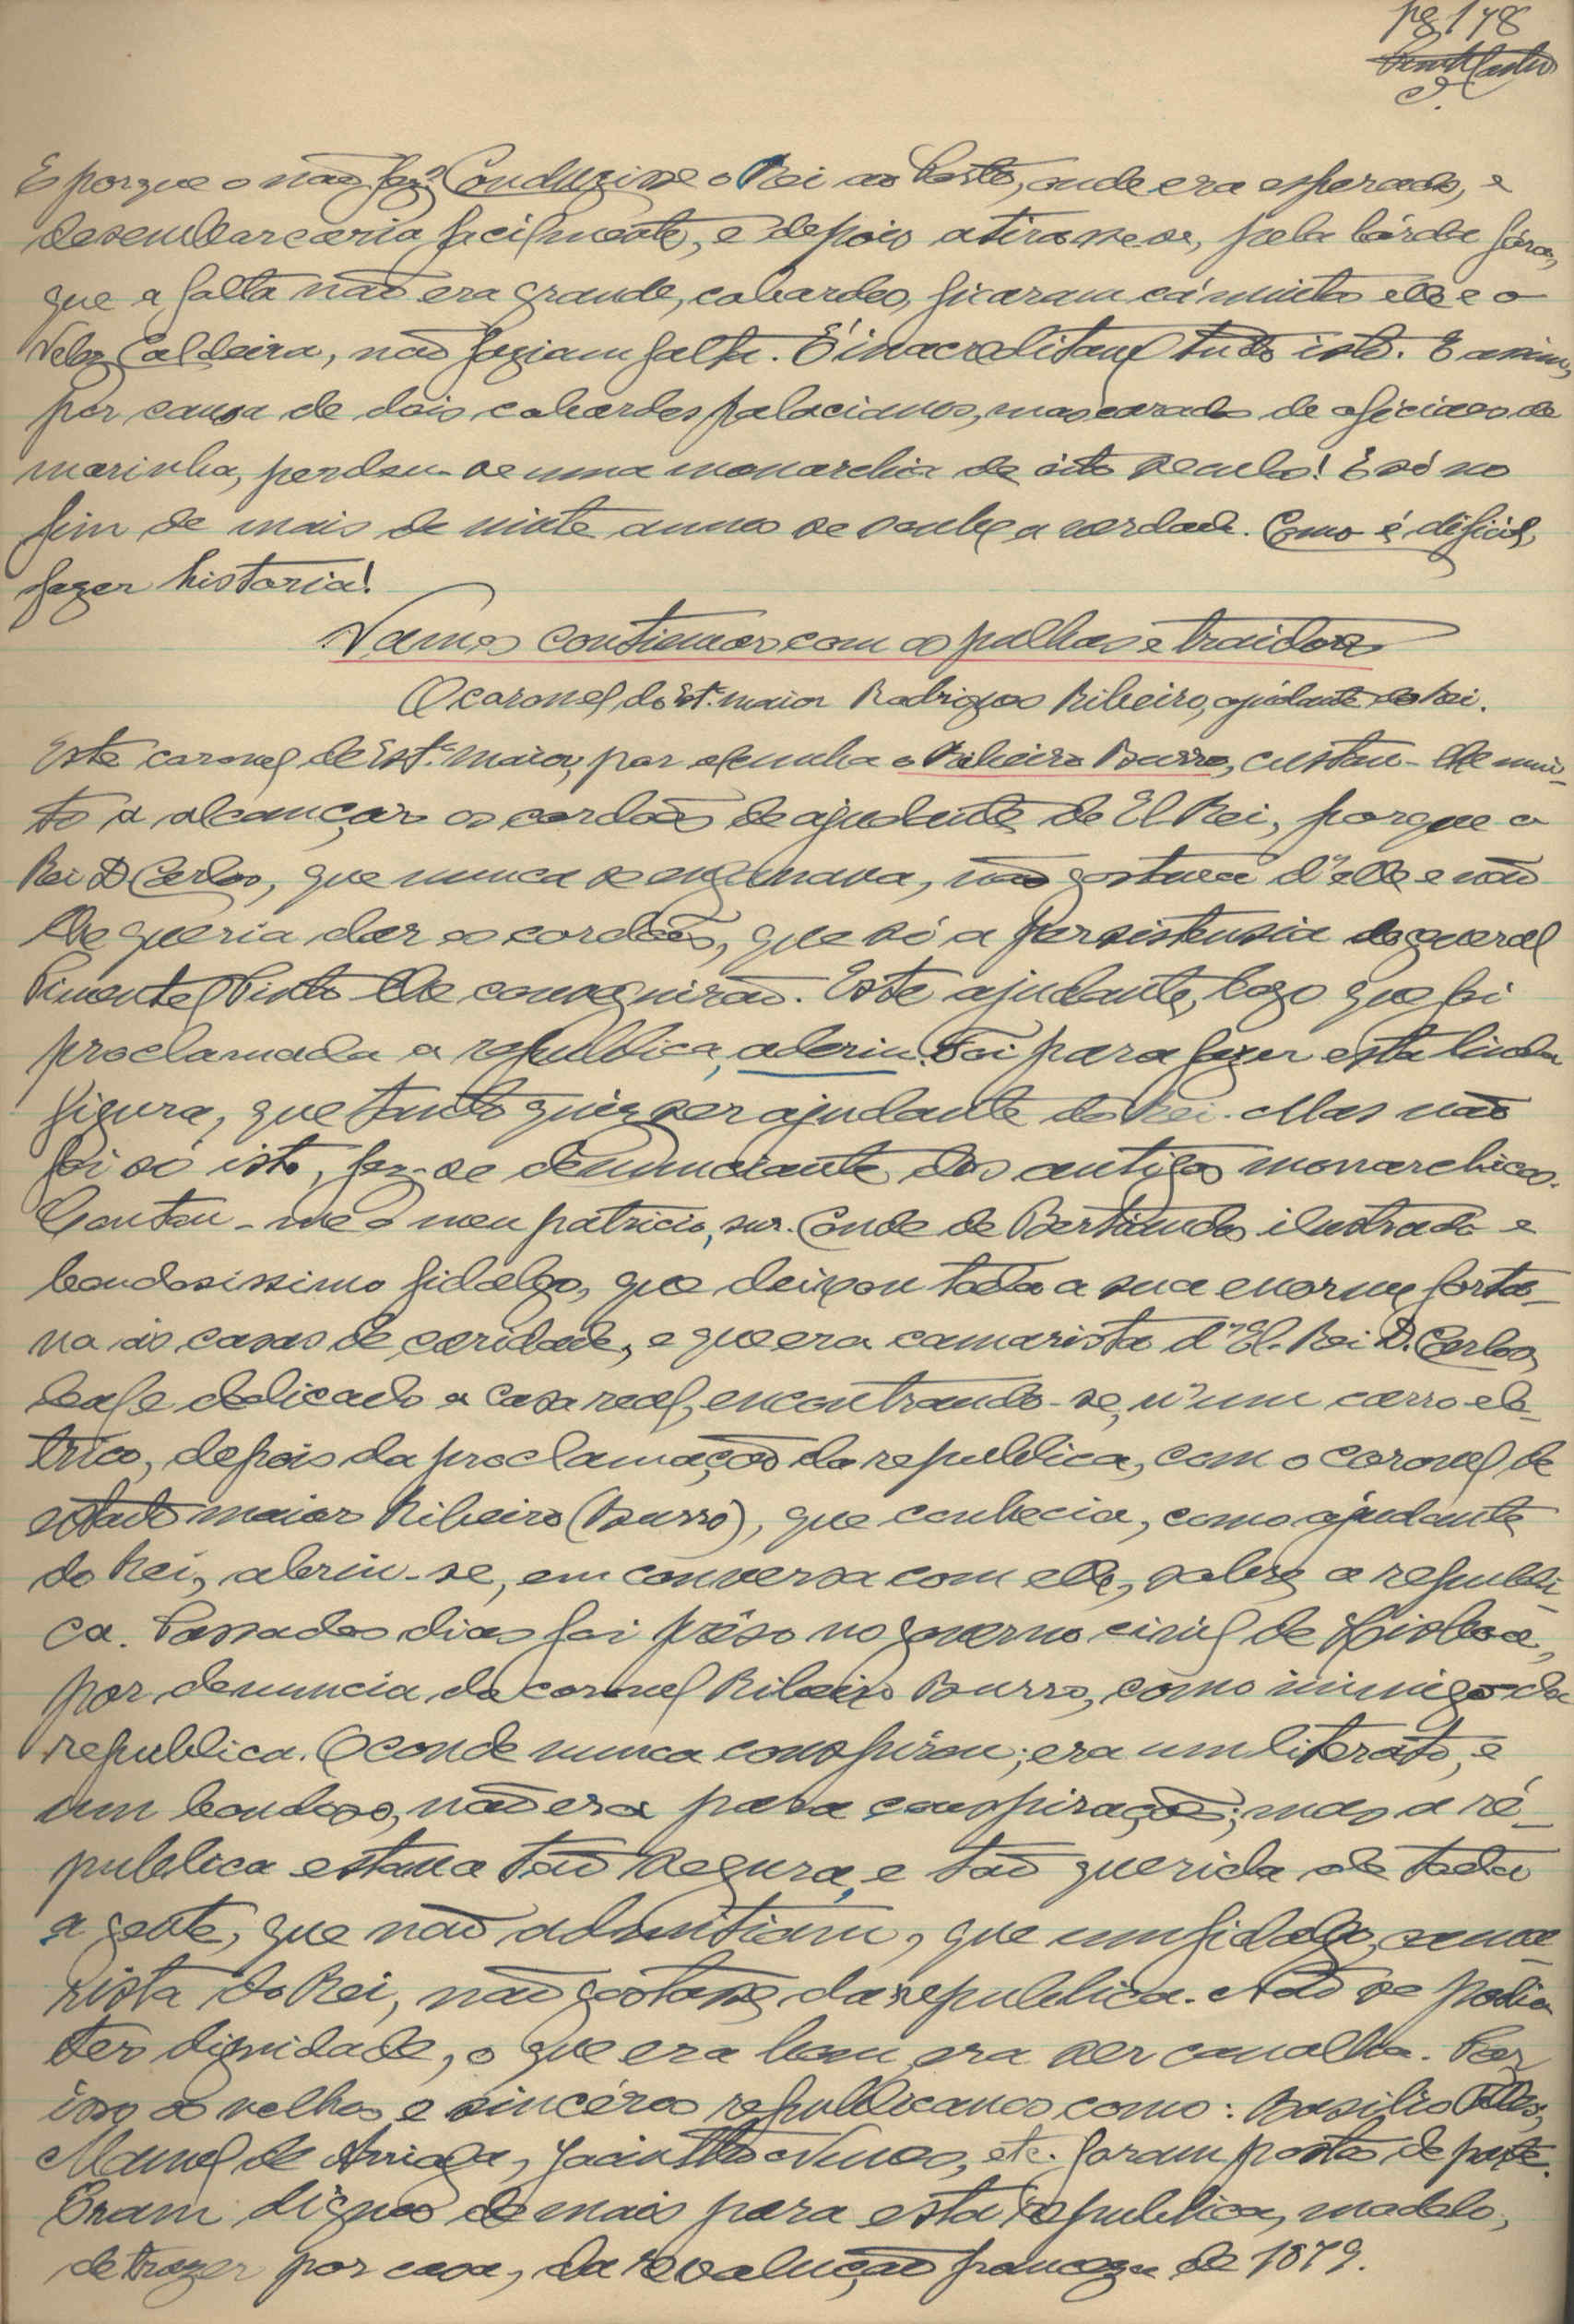 pg. 178
E porque o não fez? Conduzisse o Rei ao Porto, onde era esperado, e
desembarcaria facilmente, e depois atirasse-se, pela bórda fóra,
que a falta não era grande, cobardes, ficaram cá muitos elle e o
Velez Caldeira, não faziam falta. É inacreditavel tudo isto. E assim,
por causa de dois cobardes palacianos, mascarados de oficiaes de
marinha, perdeu-se uma monarchia de oito seculos! E só no
fim de mais de vinte annos se soube a verdade. Como é dificil,
fazer historia!
Vamos continuar com os pulhas e traidores
O coronel do Estº. maior Rodrigues Ribeiro, ajudante do Rei.
Este coronel de Estº. maior, por alcunha o Ribeiro Burro, custou-lhe mui-
to a alcançar os cordões de ajudante de El Rei, porque o
Rei D Carlos, que nunca se enganava, não gostava d'elle e não
lhe queria dar os cordões, que só a persistensia do general
Pimentel Pinto lhe conseguirão. Este ajudante, logo que foi
proclamada a republica, aderiu. Foi para fazer esta linda
figura, que tanto quiz ser ajudante do Rei. Mas não
foi só isto, fez-se denunciante dos antigos monarchicos.
Contou-me o meu patricio, snr. Conde de Bertiandos ilustrado e
bondosissimo fidalgo, que deixou toda a sua enorme fortu-
na ás casas de caridade, e que era camarista d'El-Rei D. Carlos,
leal e dedicado a casa real, encontrando-se, n'um carro ele-
trico, depois da proclamação da republica, com o coronel de
estado maior Ribeiro (Burro), que conhecia, como ajudante
do Rei, abriu-se, em conversa com elle, sobre a republi-
ca. Passados dias foi prêso no governo civil de Lisboa,
por denuncia do coronel Ribeiro Burro, como inimigo da
republica. O conde nunca conspirou; era um literato, e
um bondoso, não era para conspirações; mas a ré-
publica estava tão segura, e tão querida de toda
a gente, que não admitiam, que um fidalgo, cama-
rista do Rei, não gostasse da republica. Não se podia
ter dignidade, o que era bom era ser canalha. Por
isso os velhos e sincéros republicanos como: Basilio Telles,
Manuel de Arriaga, Jacintho Nunes, etc. foram postos de parte.
Eram dignos de mais para esta republica, modelo,
de trazer por casa, da revolução franceza de 1879.